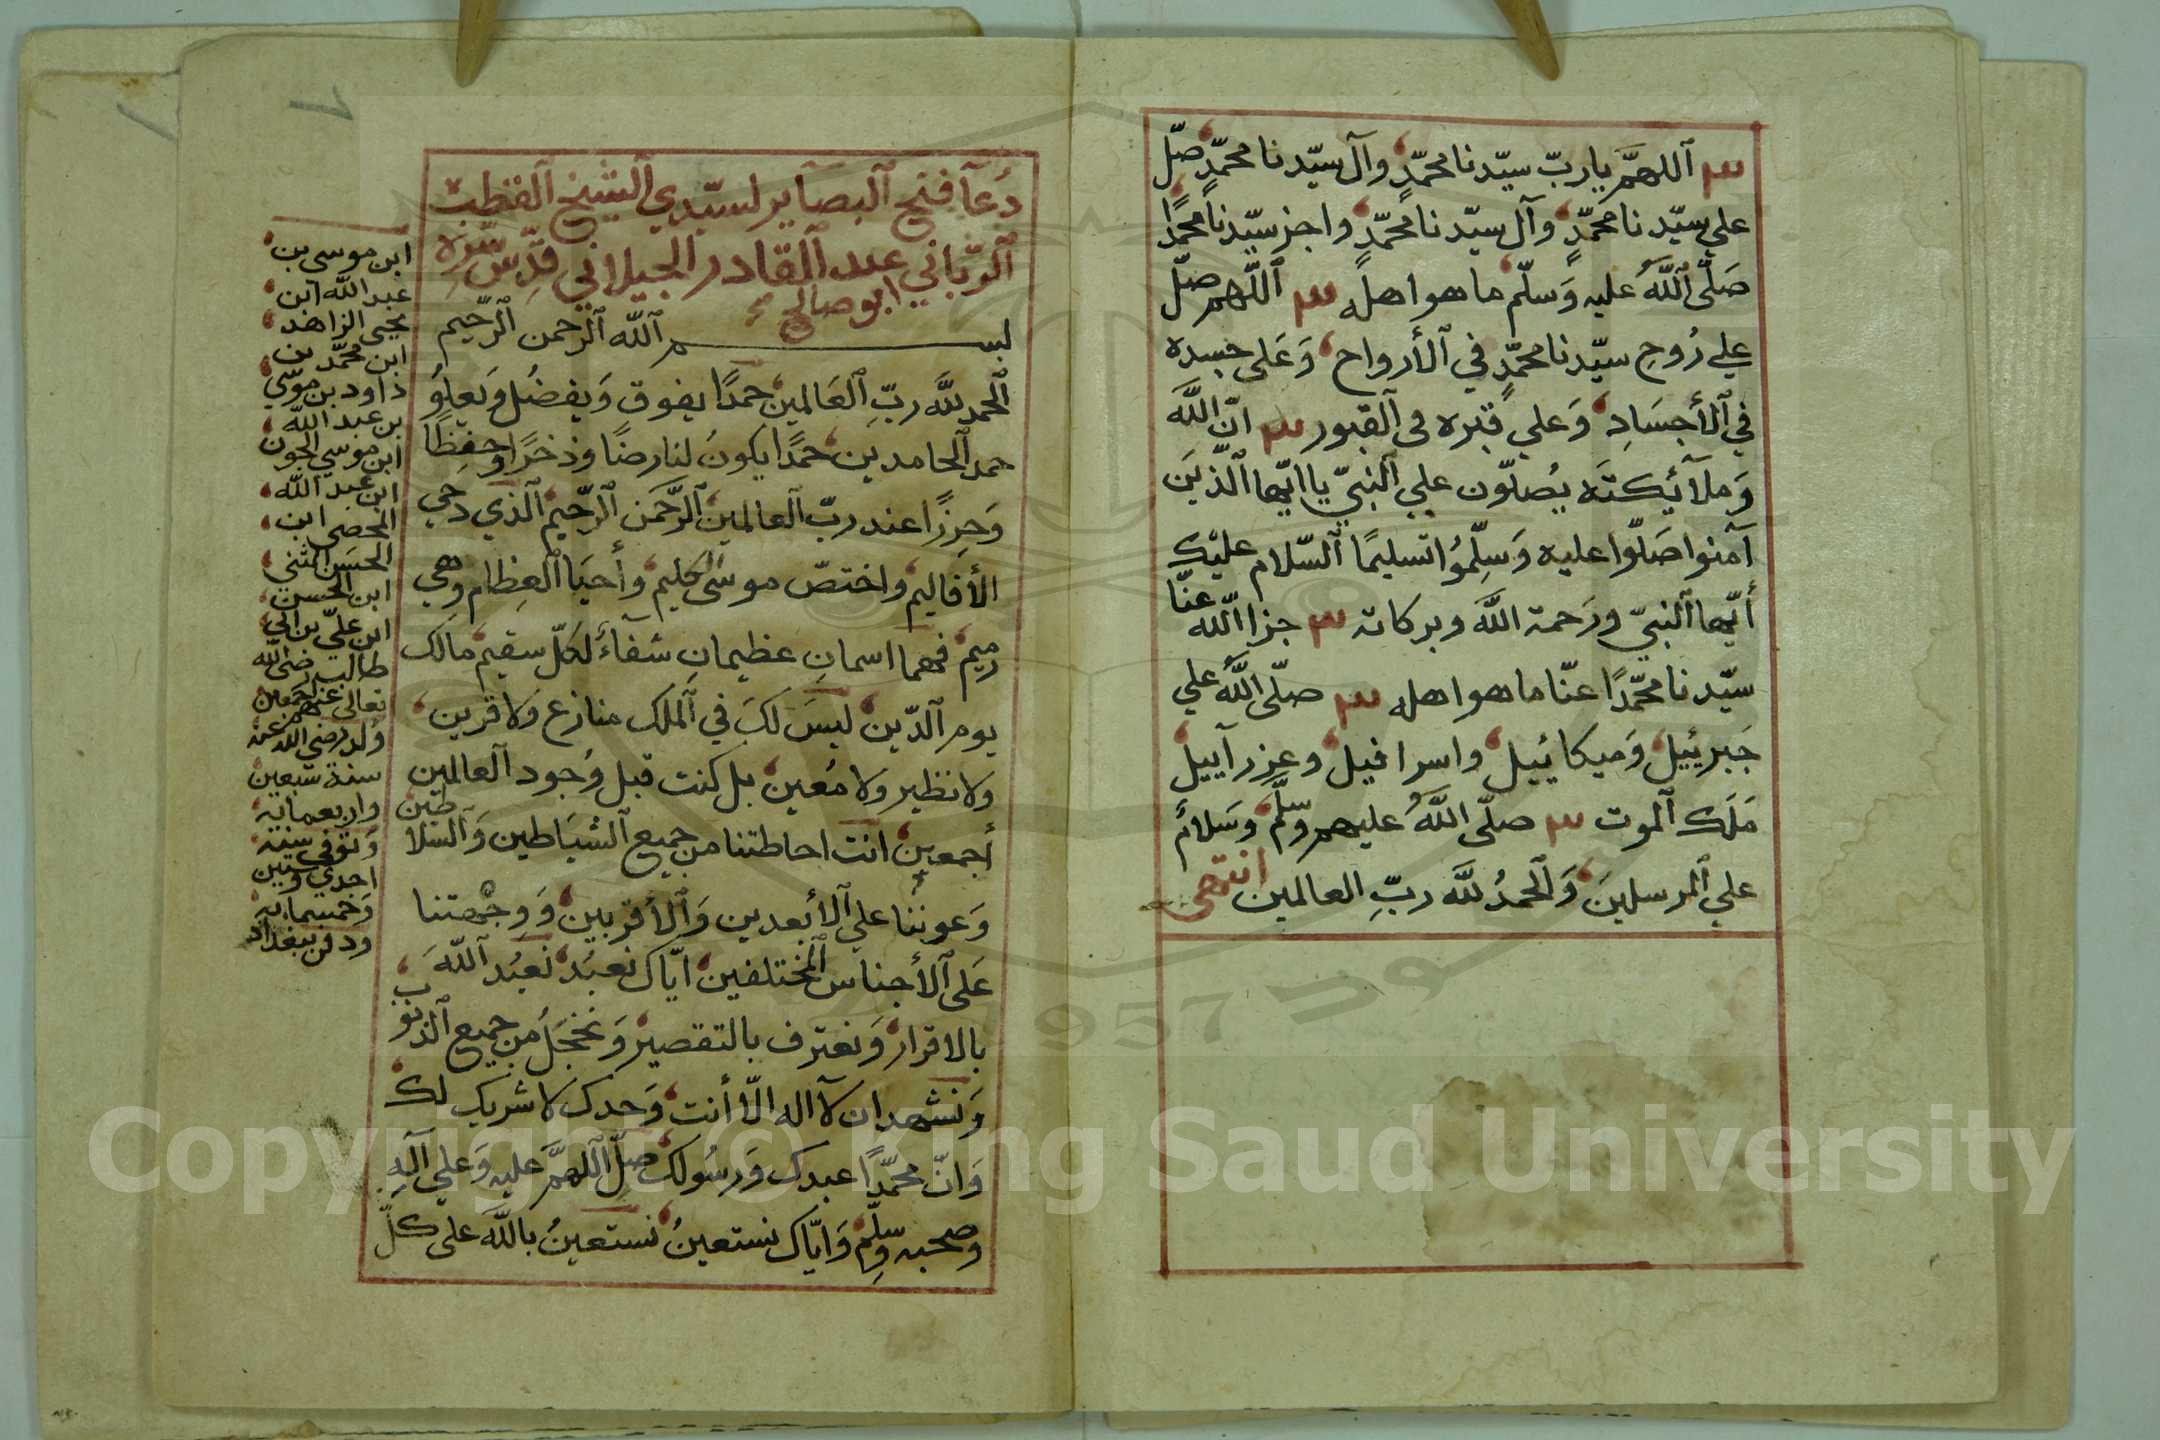 اللهمَّ يا ربّ سيّدنا محمّدٍ وآل سيّدنا محمّدٍ صلّ
علي سيّدنا محمّدٍ وآل سيّدنا محمّدٍ واجز سيّدنا محمّدًا
صَلّى ٱللَّهُ عليه وَسلّم ما هو اهله اللّهم صلّ
علي رُوحِ سيّدنا محمّدٍ في ٱلأرواح وَعَلى جسده
في ٱلأجسَادِ وَعلي قبره في ٱلقبور انّ اللَّه
وَملآئكتَه يُصلّون علي ٱلنبيّ يا ايّها ٱلّذينَ
آمنوا صَلّوا عليه وَسلِّمُوا تسليمًا ٱلسّلام عليْك
أيّها ٱلنبيّ ورَحمة اللَّه وبركاته جزا اللّه عنّا
سيّدنا محمّدًا عنّا ما هو اهله صلّى اللَّهُ علي
جَبرئيل وَميكائيل واسرافيل وعزرآييل
مَلَك ٱلموت صلّى اللَّهُ عليهم وسلَّم وسَلامٌ
علي ٱلمرسلينَ وَٱلحمدُ للَّه ربِّ العالمين انتهى
دُعآ فتح ٱلبصَاير لسيّدي ٱلشيخ ٱلقطب
ٱلرّباني عبد ٱلقادر الجيلاني قدِّس سّره
ابو صالح
بسم ٱللّه ٱلرّحمن ٱلرّحيم
ٱلحمد للَّه ربِّ ٱلعَالمين حمدًا يفوق وَيفضُل وَيعلوُ
حمد ٱلحامدين حمدًا يكونُ لنا رضًا وذخرًا وحفِظًا
وَحِرزًا عند ربّ ٱلعالمين ٱلرَّحمَن ٱلرّحيم ٱلّذي دحي
الأقاليم واختصّ موسَى الكليم وأحيَا ٱلعِظام وهي
رميم فهما اسمانِ عظيمانِ شفآءٌ لكلّ سقيم مالك
يوم ٱلدّين ليسَ لكَ في ٱلملك منازع وَلا قرين
ولا نظير ولا مُعين بل كنت قبل وُجود ٱلعالمين
أجمعين انت احاطتنا من جميع ٱلشيَاطين وَٱلسلاطين
وَعوننا علي ٱلأبعدين وَٱلأقربين وَوِجْهتنا
عَلى ٱلأجناس ٱلمختلفين ايّاك نعبُد نَعبُد ٱللّهَ
بالاقرار وَنعترف بالتقصير وَنخجَلُ من جميع ٱلذنوب
وَنشهد ان لآ اله الّا أنت وَحدك لا شريك لك
وَانّ محمّدًا عبدك وَرسُولك صلِّ اللهمَّ عليه وَعلي آلهِ
وصحبه وسلِّم وَايّاك نستعينُ نستعينُ باللَّه على كلّ
ابن موسى بن
عبد اللّه ابن
يحيى الزاهد
ابن محمّد بن
داود بن موسي
بن عبد اللّه
ابن موسي الجون
ابن عبد اللّه
المحض ابن
الحسَن المثني
ابن الحسن
ابن عليّ بن ابي
طالب رضي اللّه
تعالى عنهم اجمعين
وُلد رضي اللّه عنه
سنة سبعين
واربعمائة
وَتوفي سنة
احدي وستين
وَخمسمائة
ودفن ببغداد
Copyright © King Saud University
1957